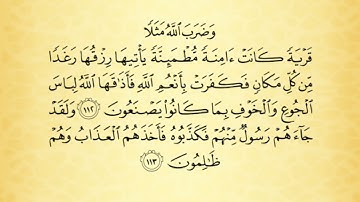 وَضَرَبَ ٱللَّهُ مَثَلًا
قَرْيَةً كَانَتْ ءَامِنَةً مُّطْمَئِنَّةً يَأْتِيهَا رِزْقُهَا رَغَدًا
مِّن كُلِّ مَكَانٍ فَكَفَرَتْ بِأَنْعُمِ ٱللَّهِ فَأَذَٰقَهَا ٱللَّهُ لِبَاسَ
ٱلْجُوعِ وَٱلْخَوْفِ بِمَا كَانُوا۟ يَصْنَعُونَ ١١٢ وَلَقَدْ
جَآءَهُمْ رَسُولٌ مِّنْهُمْ فَكَذَّبُوهُ فَأَخَذَهُمُ ٱلْعَذَابُ وَهُمْ
ظَٰلِمُونَ ١١٣